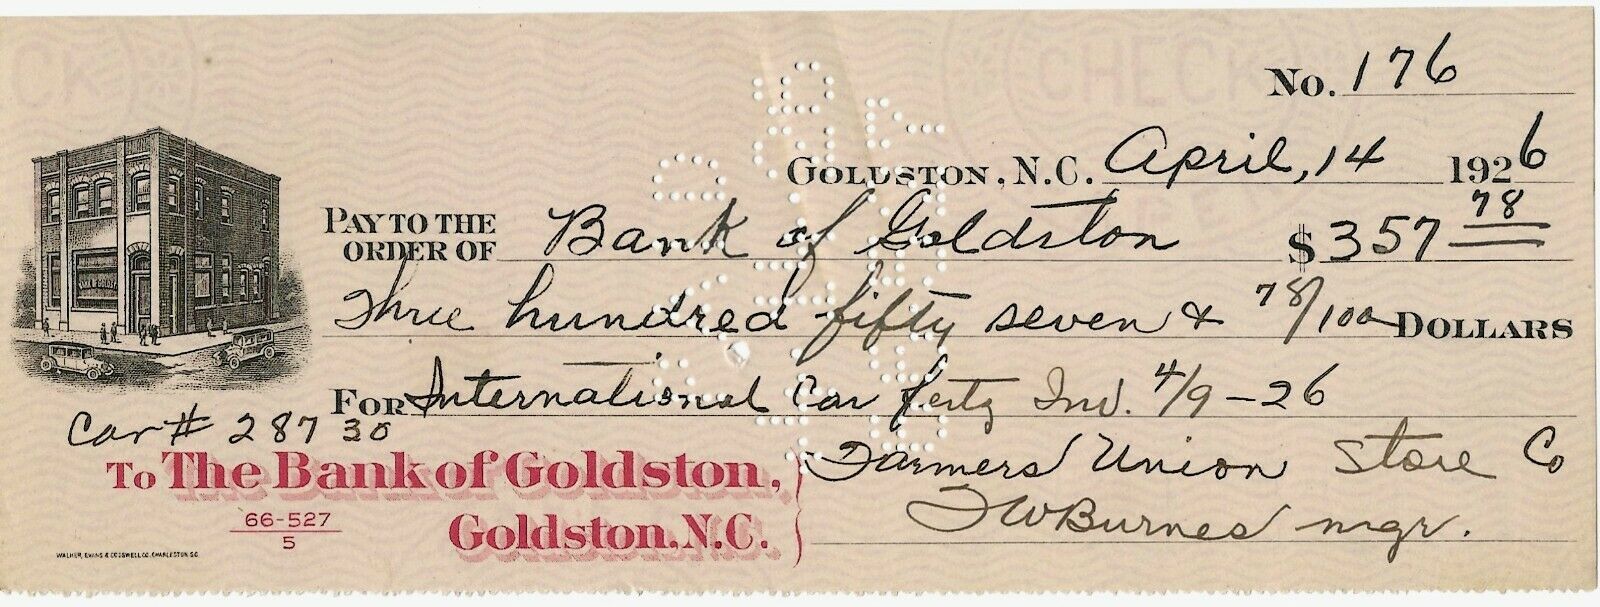 No. 176
GOLDSTON, N.C. April, 14 1926
PAY TO THE ORDER OF Bank of Goldston $357 78
Three hundred fifty seven & 78/100 DOLLARS
FOR International Car fertz Inv. 4/9-26
Car # 287 30
TO The Bank of Goldston, Farmers Union Store Co
66-527
5
Goldston, N.C. T W Burnes mgr.
WALKER, EVANS & COGSWELL CO. CHARLESTON S.C.
CHECK